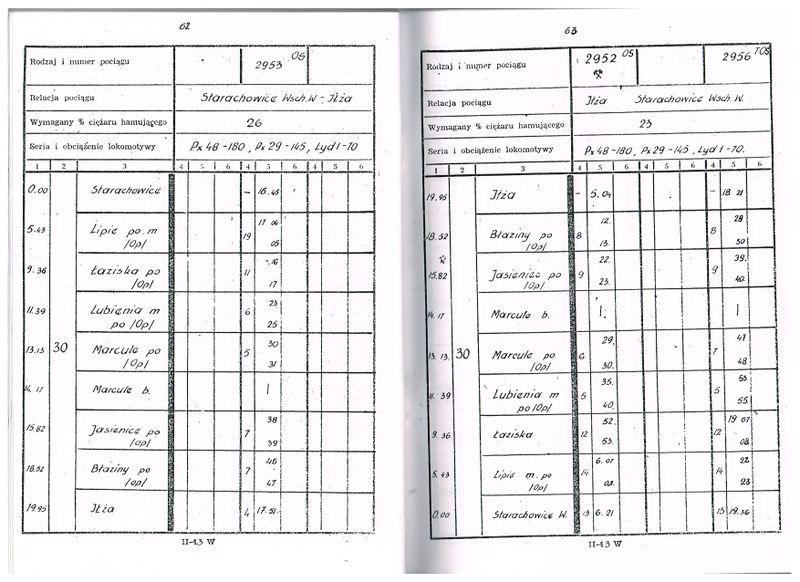 62
Rodzaj i numer pociągu 2953 OS
Relacja pociągu Starachowice Wsch. W - Iłża
Wymagany % ciężaru hamującego 26
Seria i obciążenie lokomotywy Px 48 -180, Px 29 -145, Lyd1 -70
1 2 3 4 5 6 4 5 6 4 5 6
0.00 Starachowice - 16.45
5.43 Lipie po. m /Opl 19 17 04 05
9.36 Łaziska po /Opl 11 16 17
11.39 Lubienia m po /Opl 6 23 25
13.13 30 Marcule po /Opl 5 30 31
14.17 Marcule b. |
15.82 Jasienice po /Opl 7 38 39
18.52 Błaziny po /Opl 7 46 47
19.95 Iłża 4 17.51
II-43 W
63
Rodzaj i numer pociągu 2952 OS 2956 TOS
Relacja pociągu Iłża Starachowice Wsch. W.
Wymagany % ciężaru hamującego 23
Seria i obciążenie lokomotywy Px 48 -180, Px 29 -145, Lyd 1 -70.
1 2 3 4 5 6 4 5 6 4 5 6
19.95 Iłża - 5.04 - 18 21
18.52 Błaziny po /Opl 8 12. 13. 8 29 30
15.82 Jasieniec po /Opl 9 22. 23. 9 39. 40.
14.17 Marcule b. | |
13.13. 30 Marcule po /Opl 6 29. 30. 7 47 48
11.39 Lubienia m po /Opl 5 35. 40. 5 53 55
9.36 Łaziska 12 52. 53. 12 19 07 08
5.43 Lipie m. po /Opl 14 6.07 08. 14 22 23
0.00 Starachowice W. 13 6.21 13 19.36
II-43 W